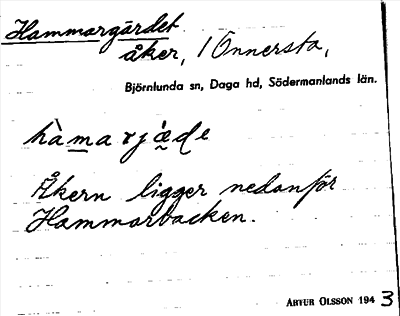 Hammargärdet
åker, / Onnersta,
Björnlunda sn, Daga hd, Södermanlands län.
hàmarjæ̀de
Åkern ligger nedanför
Hammarbacken.
ARTUR OLSSON 1943